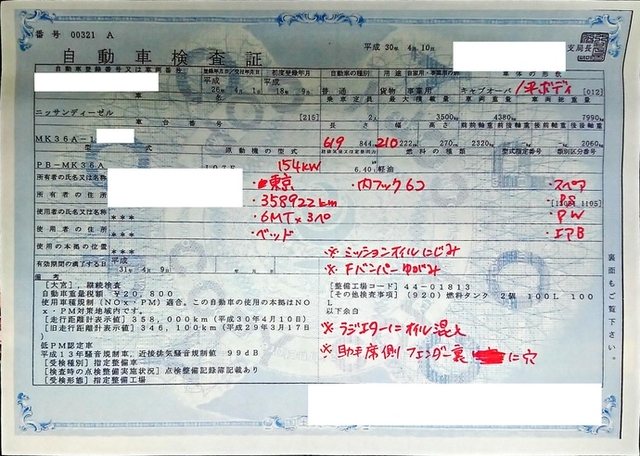 番号 00321 A
自動車検査証
平成 30年 4月 10日
支局長
自動車登録番号又は車両番号 登録年月日/交付年月日 初度登録年月 自動車の種別 用途 自家用・事業用の別 車体の形状
平成 26年 4月 1日 平成 18年 9月 普通 貨物 事業用 キャブオーバ [012]
平ボディ
乗車定員 最大積載量 車両重量 車両総重量
ニッサンディーゼル [215] 2人 3500kg 4380kg 7990kg
車台番号 長さ 幅 高さ 前前軸重 前後軸重 後前軸重 後後軸重
MK36A-1 844cm 222cm 270cm 2320kg -kg -kg 2060kg
619 210
型式 原動機の型式 燃料の種類 型式指定番号 類別区分番号
PB-MK36A 6.40 軽油
154kW
所有者の氏名又は名称
・東京
・内フック6コ
・スペア
所有者の住所
・358922km
・PS
使用者の氏名又は名称 ***
・6MT×3ペ
・PW
使用者の住所 ***
・ベッド
・エアB
使用の本拠の位置 ***
※ミッションオイルにじみ
有効期間の満了する日 平成 31年 4月 9日
※Fバンパーゆがみ
備考
[大宮] 継続検査
自動車重量税額 ¥20,800
使用車種規制(NOx・PM)適合、この自動車の使用の本拠はNOx・PM対策地域内です。
[走行距離計表示値] 358,000km (平成30年4月10日)
[旧走行距離計表示値] 346,100km (平成29年3月17日)
低PM認定車
平成13年騒音規制車、近接排気騒音規制値 99dB
[受検種別] 指定整備車
[検査時の点検整備実施状況] 点検整備記録簿記載あり
[受検形態] 指定整備工場
[整備工場コード] 44-01813
[その他検査事項] (920)燃料タンク 2個 100L 100L
以下余白
※ラジエターにオイル混入
※助手席側フェンダー裏に穴
裏面もご覧下さい。